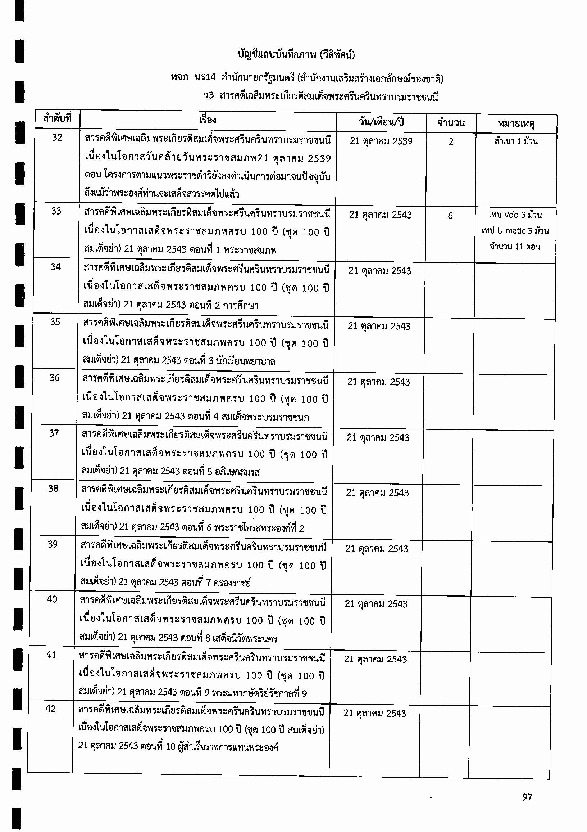 บัญชีและบันทึกภาพ (วีดิทัศน์)
หจภ นร14 สำนักนายกรัฐมนตรี (สำนักงานเสริมสร้างเอกลักษณ์ของชาติ)
ว3 สารคดีเฉลิมพระเกียรติสมเด็จพระศรีนครินทราบรมราชชนนี
ลำดับที่ เรื่อง วัน/เดือน/ปี จำนวน หมายเหตุ
32 สารคดีพิเศษเฉลิมพระเกียรติสมเด็จพระศรีนครินทราบรมราชชนนี 21 ตุลาคม 2539 2 สำเนา 1 ม้วน
เนื่องในโอกาสวันคล้ายวันพระราชสมภพ21 ตุลาคม 2539
ตอน โครงการตามแนวพระราชดำริยังคงดำเนินการต่อมาจนปัจจุบัน
ถึงแม้ว่าพระองค์ท่านจะเสด็จสวรรคตไปแล้ว
33 สารคดีพิเศษเฉลิมพระเกียรติสมเด็จพระศรีนครินทราบรมราชชนนี 21 ตุลาคม 2543 6 เทป vdo 3 ม้วน
เนื่องในโอกาสเสด็จพระราชสมภพครบ 100 ปี (ชุด 100 ปี เทป U matic 3 ม้วน
สมเด็จย่า) 21 ตุลาคม 2543 ตอนที่ 1 พระราชสมภพ จำนวน 11 ตอน
34 สารคดีพิเศษเฉลิมพระเกียรติสมเด็จพระศรีนครินทราบรมราชชนนี 21 ตุลาคม 2543
เนื่องในโอกาสเสด็จพระราชสมภพครบ 100 ปี (ชุด 100 ปี
สมเด็จย่า) 21 ตุลาคม 2543 ตอนที่ 2 การศึกษา
35 สารคดีพิเศษเฉลิมพระเกียรติสมเด็จพระศรีนครินทราบรมราชชนนี 21 ตุลาคม 2543
เนื่องในโอกาสเสด็จพระราชสมภพครบ 100 ปี (ชุด 100 ปี
สมเด็จย่า) 21 ตุลาคม 2543 ตอนที่ 3 นักเรียนพยาบาล
36 สารคดีพิเศษเฉลิมพระเกียรติสมเด็จพระศรีนครินทราบรมราชชนนี 21 ตุลาคม 2543
เนื่องในโอกาสเสด็จพระราชสมภพครบ 100 ปี (ชุด 100 ปี
สมเด็จย่า) 21 ตุลาคม 2543 ตอนที่ 4 สมเด็จพระบรมราชชนก
37 สารคดีพิเศษเฉลิมพระเกียรติสมเด็จพระศรีนครินทราบรมราชชนนี 21 ตุลาคม 2543
เนื่องในโอกาสเสด็จพระราชสมภพครบ 100 ปี (ชุด 100 ปี
สมเด็จย่า) 21 ตุลาคม 2543 ตอนที่ 5 อภิเษกสมรส
38 สารคดีพิเศษเฉลิมพระเกียรติสมเด็จพระศรีนครินทราบรมราชชนนี 21 ตุลาคม 2543
เนื่องในโอกาสเสด็จพระราชสมภพครบ 100 ปี (ชุด 100 ปี
สมเด็จย่า) 21 ตุลาคม 2543 ตอนที่ 6 พระราชโอรสพระองค์ที่ 2
39 สารคดีพิเศษเฉลิมพระเกียรติสมเด็จพระศรีนครินทราบรมราชชนนี 21 ตุลาคม 2543
เนื่องในโอกาสเสด็จพระราชสมภพครบ 100 ปี (ชุด 100 ปี
สมเด็จย่า) 21 ตุลาคม 2543 ตอนที่ 7 ครองราชย์
40 สารคดีพิเศษเฉลิมพระเกียรติสมเด็จพระศรีนครินทราบรมราชชนนี 21 ตุลาคม 2543
เนื่องในโอกาสเสด็จพระราชสมภพครบ 100 ปี (ชุด 100 ปี
สมเด็จย่า) 21 ตุลาคม 2543 ตอนที่ 8 เสด็จนิวัตพระนคร
41 สารคดีพิเศษเฉลิมพระเกียรติสมเด็จพระศรีนครินทราบรมราชชนนี 21 ตุลาคม 2543
เนื่องในโอกาสเสด็จพระราชสมภพครบ 100 ปี (ชุด 100 ปี
สมเด็จย่า) 21 ตุลาคม 2543 ตอนที่ 9 พระมหากษัตริย์รัชกาลที่ 9
42 สารคดีพิเศษเฉลิมพระเกียรติสมเด็จพระศรีนครินทราบรมราชชนนี 21 ตุลาคม 2543
เนื่องในโอกาสเสด็จพระราชสมภพครบ 100 ปี (ชุด 100 ปี สมเด็จย่า)
21 ตุลาคม 2543 ตอนที่ 10 ผู้สำเร็จราชการแทนพระองค์
97